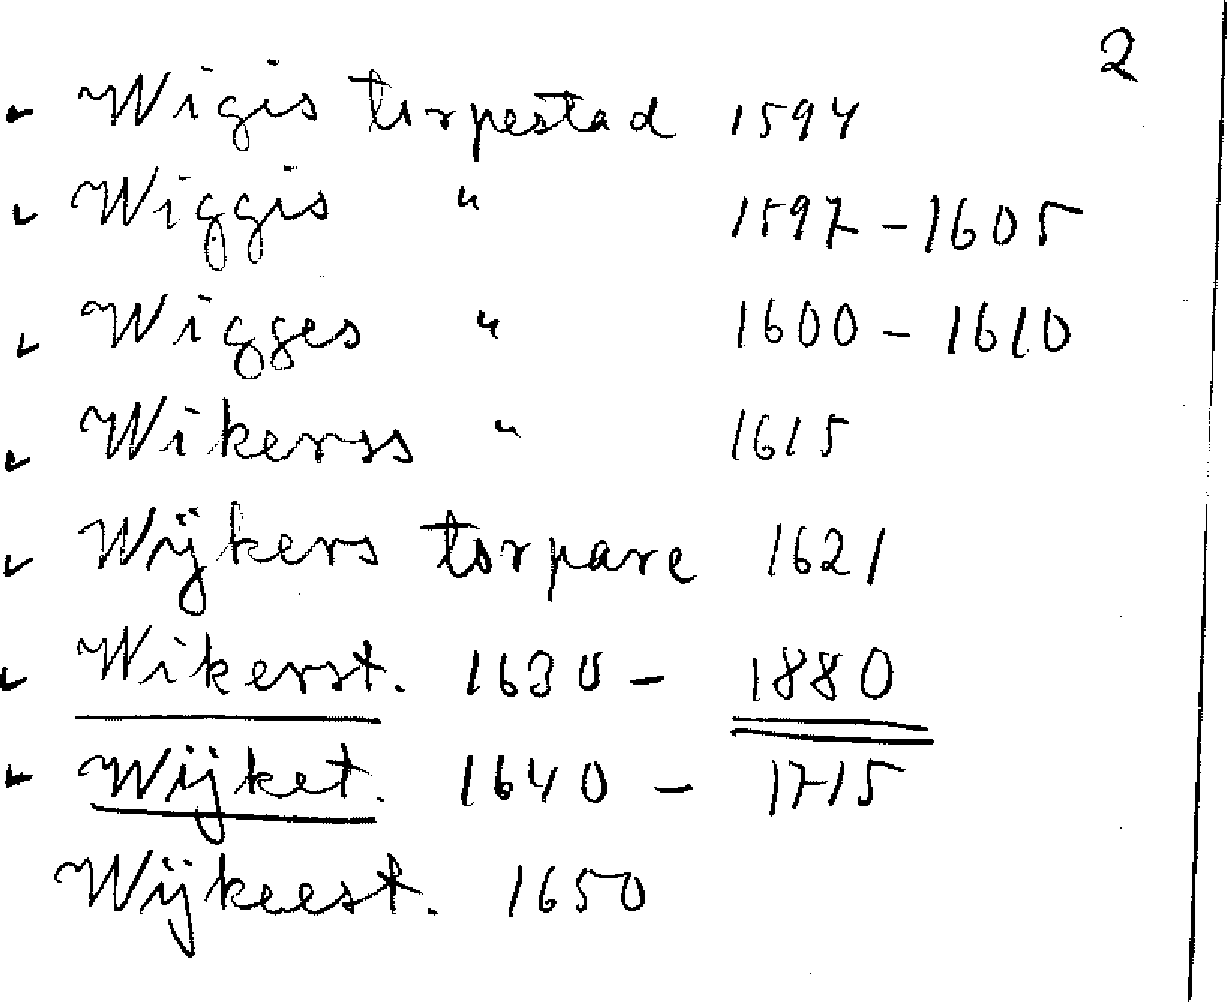 2
Wigis torpestad 1594
Wiggis " 1597-1605
Wigges " 1600-1610
Wikerss " 1615
Wijkers torpare 1621
Wikerst. 1630 - 1880
Wijket. 1640 - 1715
Wijkeest. 1650